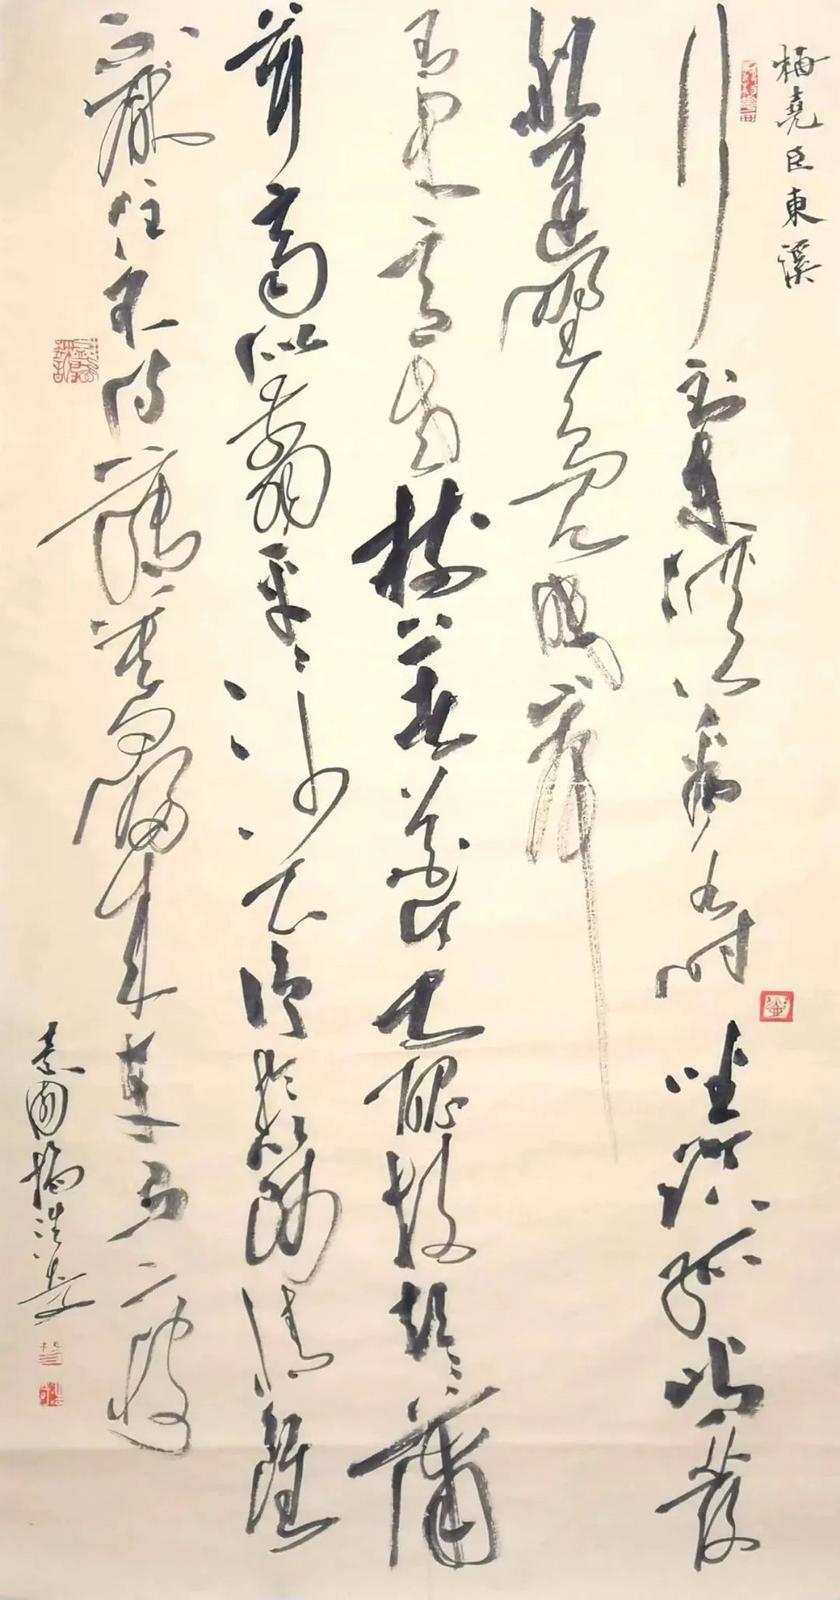 梅堯臣東溪
行到東溪看水時坐臨孤嶼發
船遲野鳧眠岸
有閒意老樹著花無醜枝短々蒲
茸齊似翦平々沙石淨於篩情雖
不厭住不得薄暮歸來車馬疲